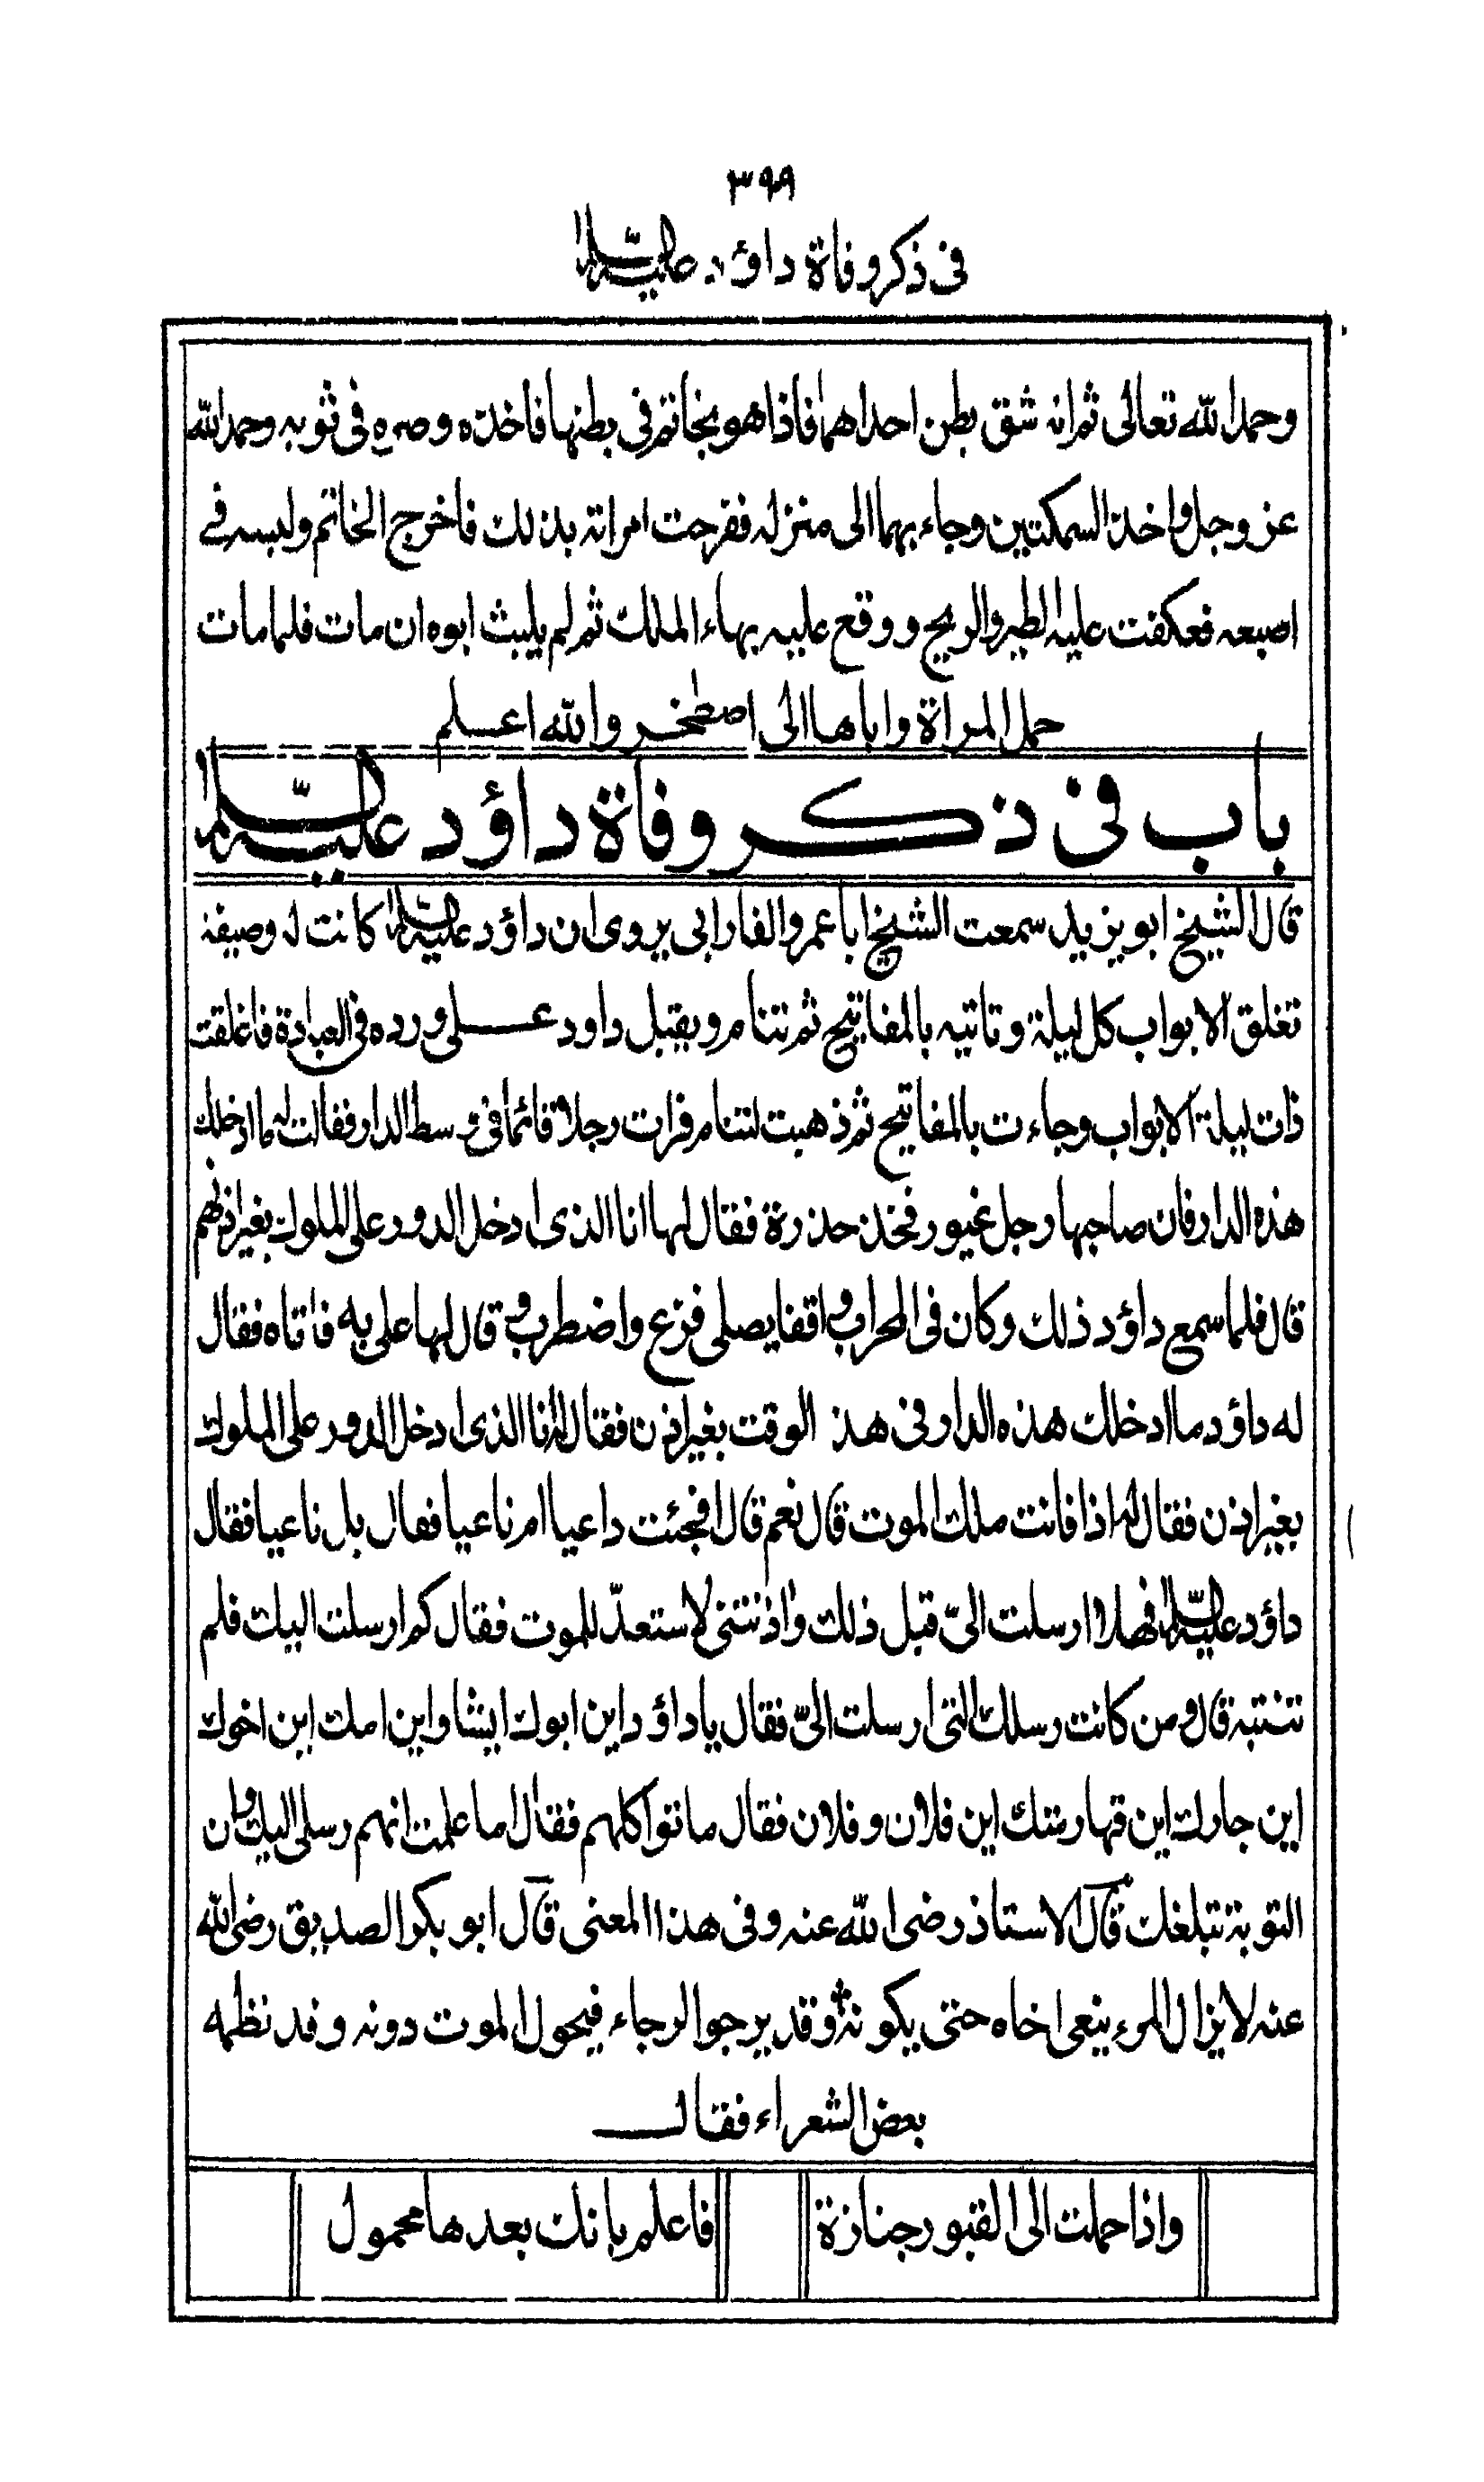 ٣٩٩
فى ذكر وفاة داؤد عليه السلام
وحمد الله تعالى ثم انه شق بطن احداهما فاذا هو بخاتم فى بطنها فاخذه وصره فى ثوبه وحمد الله
عز وجل واخذ السمكتين وجاء بهما الى منزله ففرحت امراته بذلك فاخرج الخاتم ولبسه فے
اصبعه فعكفت عليه الطير والريح ووقع عليه بهاء الملك ثم لم يلبث ابوه ان مات فلما مات
حمل المراة واباها الى اصطخر والله اعلم
باب فى ذكر وفاة داؤد عليه السلام
قال الشيخ ابو يزيد سمعت الشيخ ابا عمرو الفارابى يروى ان داؤد عليه السلام كانت له وصيفة
تغلق الابواب كل ليلة وتاتيه بالمفاتيح ثم تنام ويقبل داود على ورده فى العبادة فاغلقت
ذات ليلة الابواب وجاءت بالمفاتيح ثم ذهبت لتنام فرات رجلا قائما فى وسط الدار فقالت له ما ادخلك
هذه الدار فان صاحبها رجل غيور فخذ حذرة فقال لها انا الذى ادخل الدور على الملوك بغير اذنهم
قال فلما سمع داؤد ذلك وكان فى المحراب واقفا يصلى فزع واضطرب وقال لها على به فاتاه فقال
له داؤد ما ادخلك هذه الدار فى هذ الوقت بغير اذن فقال له انا الذى ادخل الدور على الملوك
بغير اذن فقال له اذا فانت ملك الموت قال نعم قال افجئت داعيا ام ناعيا فقال بل ناعيا فقال
داؤد عليه السلام فهلا ارسلت الىّ قبل ذلك واذنتنى لاستعدّ للموت فقال كم ارسلت اليك فلم
تنتبه قال ومن كانت رسلك التى ارسلت الىّ فقال يا داؤد اين ابوك ايشا واين امك اين اخوك
اين جارك اين قهارمتك اين فلان وفلان فقال ماتوا كلهم فقال اما علمت انهم رسلى اليك وان
التوبة تبلغك قال الاستاذ رضى الله عنه وفى هذا المعنى قال ابو بكر الصديق رضى الله
عنه لا يزال المرء ينعى اخاه حتى يكونه وقد يرجو الرجاء فيحول الموت دونه وقد نظمه
بعض الشعراء فقال
واذا حملت الى القبور جنازة فاعلم بانك بعدها محمول